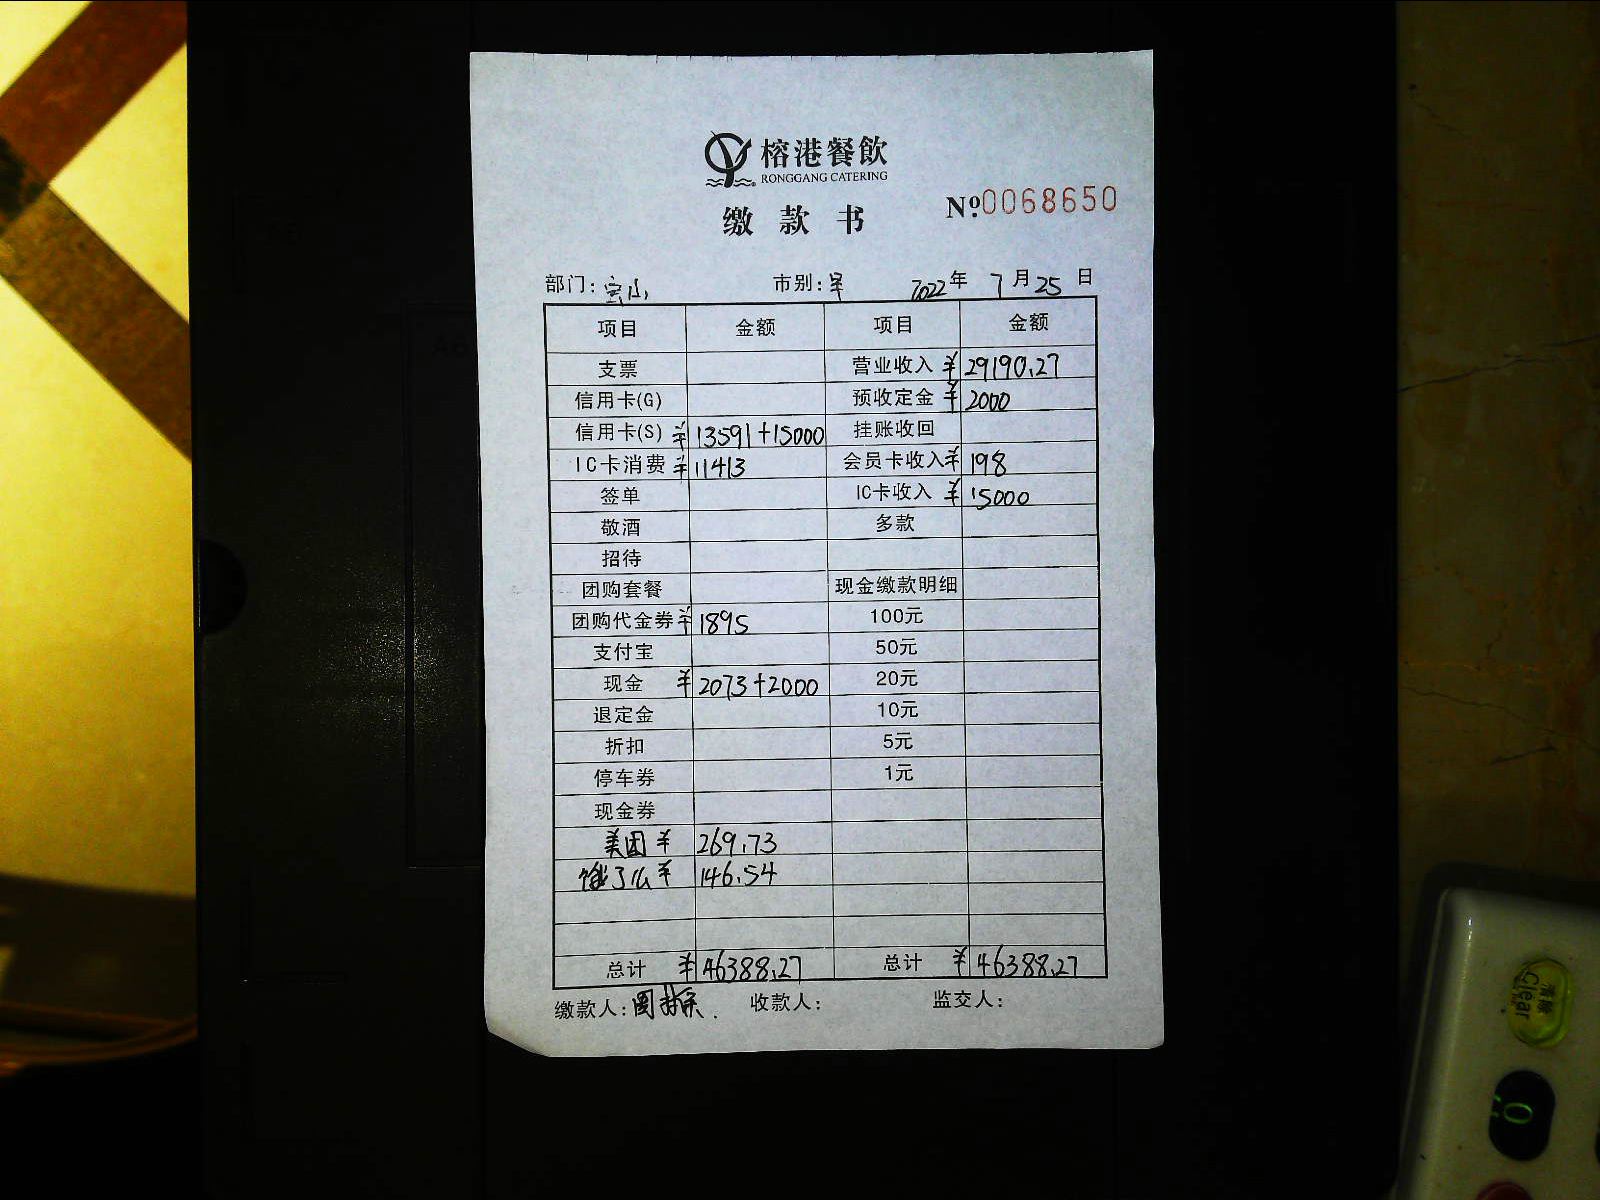 榕港餐飲
RONGGANG CATERING
缴款书
№0068650
部门：宝山 市别：早 2022年 7月25日
项目 金额 项目 金额
支票 营业收入 ¥29190.27
信用卡(G) 预收定金 ¥2000
信用卡(S) ¥13591+15000 挂账收回
IC卡消费 ¥11413 会员卡收入 ¥198
签单 IC卡收入 ¥15000
敬酒 多款
招待
团购套餐 现金缴款明细
团购代金券 ¥1895 100元
支付宝 50元
现金 ¥2073+2000 20元
退定金 10元
折扣 5元
停车券 1元
现金券
美团 ¥269.73
饿了么 ¥146.54
总计 ¥46388.27 总计 ¥46388.27
缴款人： 收款人： 监交人：
清除
Clear
0